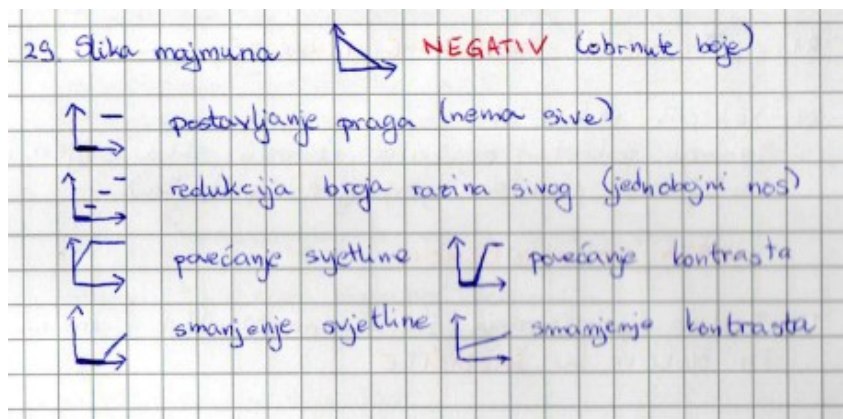 29. Slika majmuna NEGATIV (obrnute boje)
postavljanje praga (nema sive)
redukcija broja razina sivog (jednobojni nos)
povećanje svjetline povećanje kontrasta
smanjenje svjetline smanjenje kontrasta